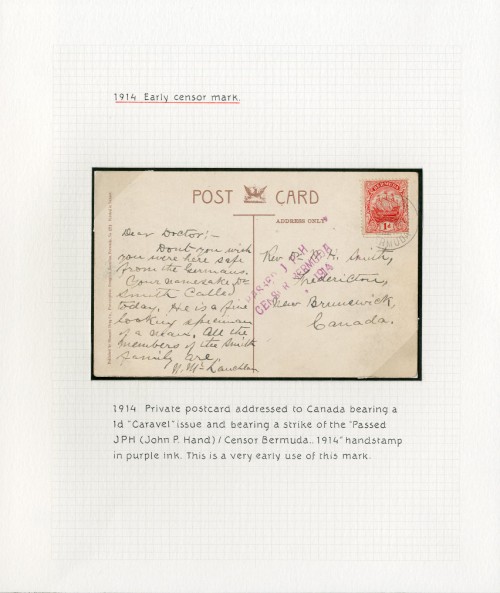 1914 Early censor mark.
POST CARD
ADDRESS ONLY
BERMUDA
1d
Dear Doctor:-
Don't you wish
you were here safe
from the Germans.
Your namesake Dr
Smith called
today. He is a fine
looking specimen
of a man. All the
members of the Smith
family are.
W. McLauchlan
Rev Dr H. Smith,
Fredericton,
New Brunswick,
Canada.
PASSED J P H
CENSOR BERMUDA
1914
1914 Private postcard addressed to Canada bearing a
1d "Caravel" issue and bearing a strike of the "Passed
JPH (John P. Hand) / Censor Bermuda.. 1914" handstamp
in purple ink. This is a very early use of this mark.